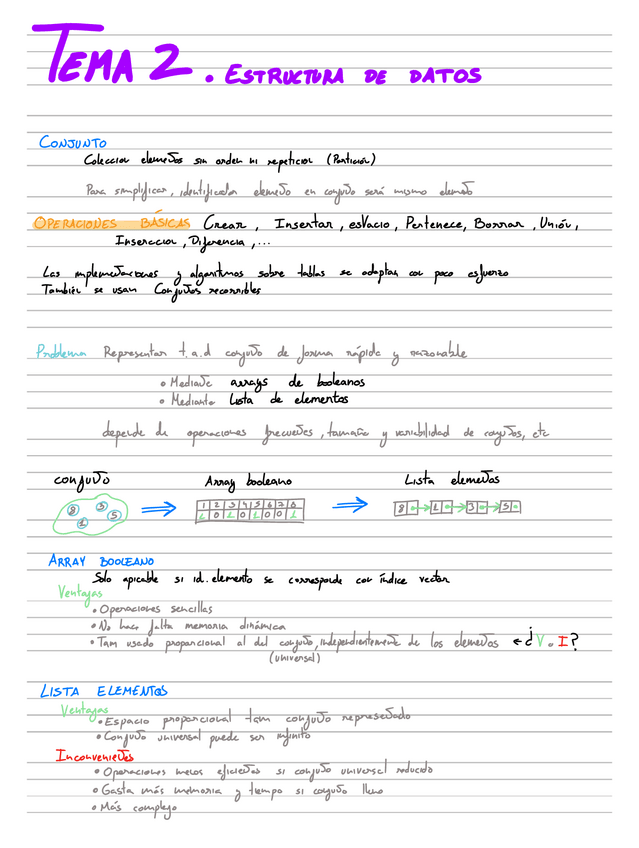 TEMA 2. ESTRUCTURA DE DATOS
CONJUNTO
Coleccion elementos sin orden ni repeticion (Partición)
Para simplificar, identificador elemento en conjunto será mismo elemento
OPERACIONES BÁSICAS Crear, Insertar, esVacio, Pertenece, Borrar, Unión,
Inserccion, Diferencia,...
Las implementaciones y algoritmos sobre tablas se adaptan con poco esfuerzo
También se usan Conjuntos recorribles
Problema Representar t.a.d conjunto de forma rápida y razonable
• Mediante arrays de booleanos
• Mediante Lista de elementos
depende de operaciones frecuentes, tamaño y variabilidad de conjuntos, etc
conjunto Array booleano Lista elementos
8 3 1 5
1 2 3 4 5 6 7 8
1 0 1 0 1 0 0 1
8 1 3 5
ARRAY BOOLEANO
Solo apicable si id. elemento se corresponde con índice vector
Ventajas
• Operaciones sencillas
• No hace falta memoria dinámica
• Tam usado proporcional al del conjunto, independientemente de los elementos ← ¿V o I?
(universal)
LISTA ELEMENTOS
Ventajas
• Espacio proporcional tam conjunto representado
• Conjunto universal puede ser infinito
Inconvenientes
• Operaciones menos eficientes si conjunto universal reducido
• Gasta más memoria y tiempo si conjunto lleno
• Más complejo